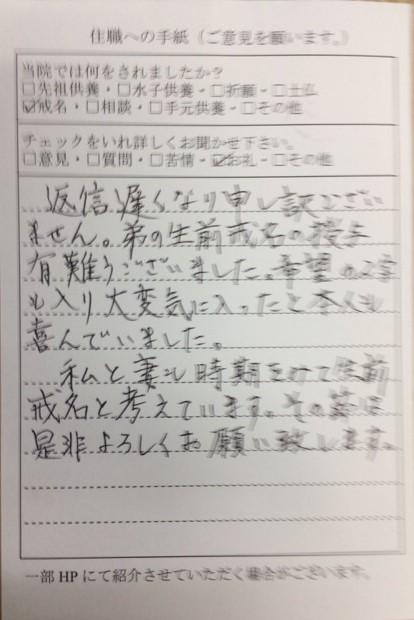 住職への手紙（ご意見を願います。）
当院では何をされましたか？
□先祖供養・□水子供養・□祈願・□土仏
☑戒名・□相談・□手元供養・□その他
チェックをいれ詳しくお聞かせ下さい。
□意見・□質問・□苦情・☑お礼・□その他
返信遅くなり申し訳ござい
ません。弟の生前戒名の授与
有難うございました。希望の2字
も入り大変気に入ったと本人も
喜んでいました。
私と妻も時期をみて生前
戒名と考えています。その節は
是非よろしくお願い致します。
一部HPにて紹介させていただく場合がございます。